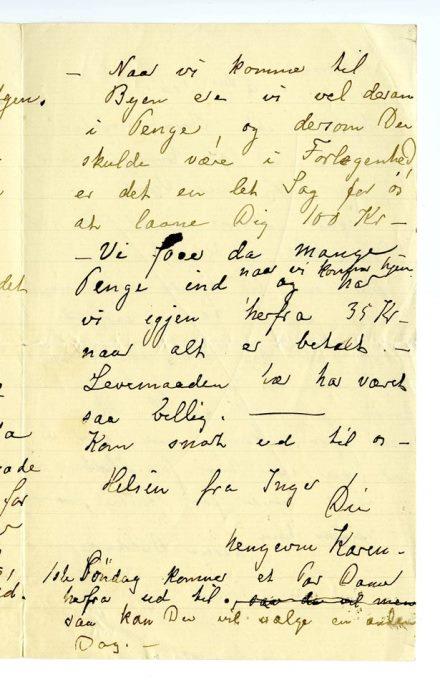 — Naar vi komme til
Byen ere vi vel deran
i Penge, og dersom Du
skulde være i Forlegenhed
er det en let Sag for os
at laane Dig 100 Kr —
— Vi faae da mange
Penge ind naar vi komme hjem
og har
vi igjen herfra 35 Kr —
naar alt er betalt. —
Levemaaden her har været
saa billig. —
Kom snart ud til os —
Hilsen fra Inger
Din
hengivne Karen.
Söndag kommer et Par Damer
herfra ud til.
saa kan Du vel vælge en anden
Dag. —
det
for